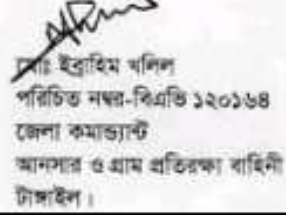 মোঃ ইব্রাহিম খলিল
পরিচিত নম্বর-বিএভি ১২০১৬৪
জেলা কমান্ড্যান্ট
আনসার ও গ্রাম প্রতিরক্ষা বাহিনী
টাঙ্গাইল।